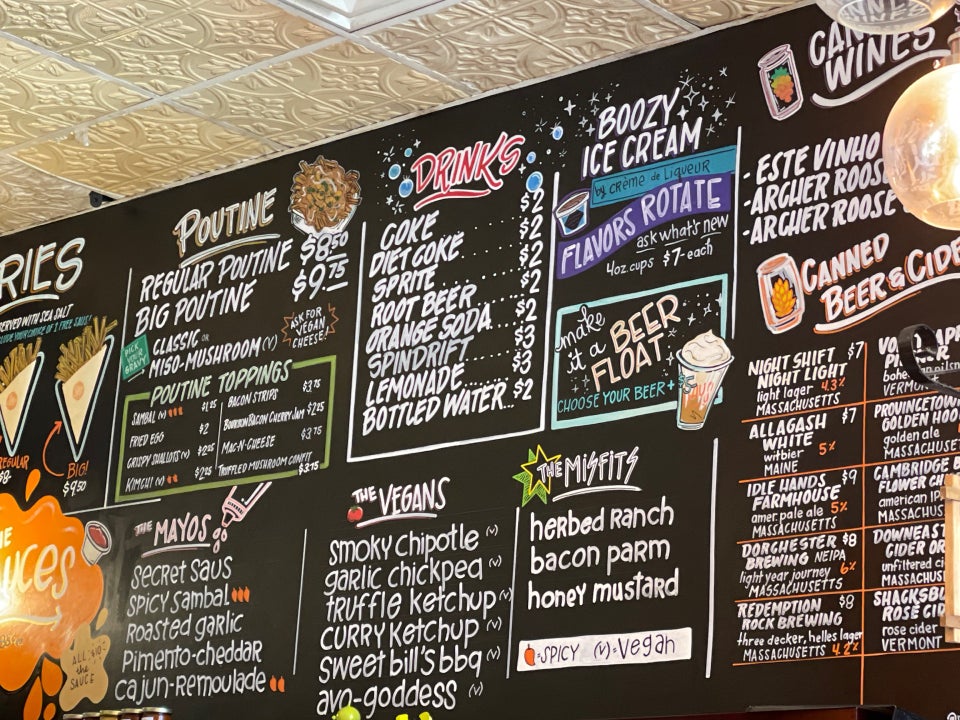 RIES
ERVED WITH SEA SALT
REGULAR
BIG!
$9.50
POUTINE
REGULAR POUTINE $8.50
BIG POUTINE $9.75
PICK YOUR GRAVY
CLASSIC OR
MISO-MUSHROOM (V)
ASK FOR VEGAN CHEESE!
POUTINE TOPPINGS
SAMBAL (V) $1.25
FRIED EGG $2
CRISPY SHALLOTS (V) $2.25
KIMCHI (V) $2.25
BACON STRIPS $3.75
BOURBON BACON CHERRY JAM $2.25
MAC-N-CHEESE $3.75
TRUFFLED MUSHROOM CONFIT $3.75
DRINKS
COKE $2
DIET COKE $2
SPRITE $2
ROOT BEER $2
ORANGE SODA $2
SPINDRIFT $3
LEMONADE $3
BOTTLED WATER $2
BOOZY
ICE CREAM
by CRÈME de LIQUEUR
FLAVORS ROTATE
ask what's new
4oz. cups $7-each
make
it a BEER
FLOAT
CHOOSE YOUR BEER +
CANNED
WINES
- ESTE VINHO
- ARCHER ROOSE
- ARCHER ROOSE
CANNED
BEER & CIDE
NIGHT SHIFT $7
NIGHT LIGHT
light lager 4.3%
MASSACHUSETTS
ALLAGASH $7
WHITE
witbier 5%
MAINE
IDLE HANDS $9
FARMHOUSE
amer. pale ale 5%
MASSACHUSETTS
DORCHESTER $8
BREWING NEIPA
light year journey 6%
MASSACHUSETTS
REDEMPTION $8
ROCK BREWING
three decker, helles lager
MASSACHUSETTS 4.2%
VERMONT
PROVINCETOWN
GOLDEN HOO
golden ale
MASSACHUSET
CAMBRIDGE B
FLOWER CH
american IPA
MASSACHUS
DOWNEAST
CIDER OR
unfiltered ci
MASSACHUS
SHACKSBU
ROSÉ CID
rose cider
VERMONT
THE
UCES
THE MAYOS
secret saus
spicy sambal
roasted garlic
pimento-cheddar
cajun-remoulade
THE VEGANS
smoky chipotle (V)
garlic chickpea (V)
truffle ketchup (V)
curry ketchup (V)
sweet bill's bbq (V)
avo-goddess (V)
THE MISFITS
herbed ranch
bacon parm
honey mustard
=SPICY (V)=Vegan